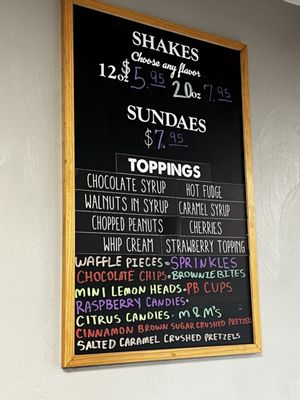 SHAKES
Choose any flavor
12oz $5.95 20oz 7.95
SUNDAES
$7.95
TOPPINGS
CHOCOLATE SYRUP HOT FUDGE
WALNUTS IN SYRUP CARAMEL SYRUP
CHOPPED PEANUTS CHERRIES
WHIP CREAM STRAWBERRY TOPPING
WAFFLE PIECES • SPRINKLES
CHOCOLATE CHIPS • BROWNIE BITES
MINI LEMON HEADS • PB CUPS
RASPBERRY CANDIES •
CITRUS CANDIES • M&M's
CINNAMON BROWN SUGAR CRUSHED PRETZEL
SALTED CARAMEL CRUSHED PRETZELS